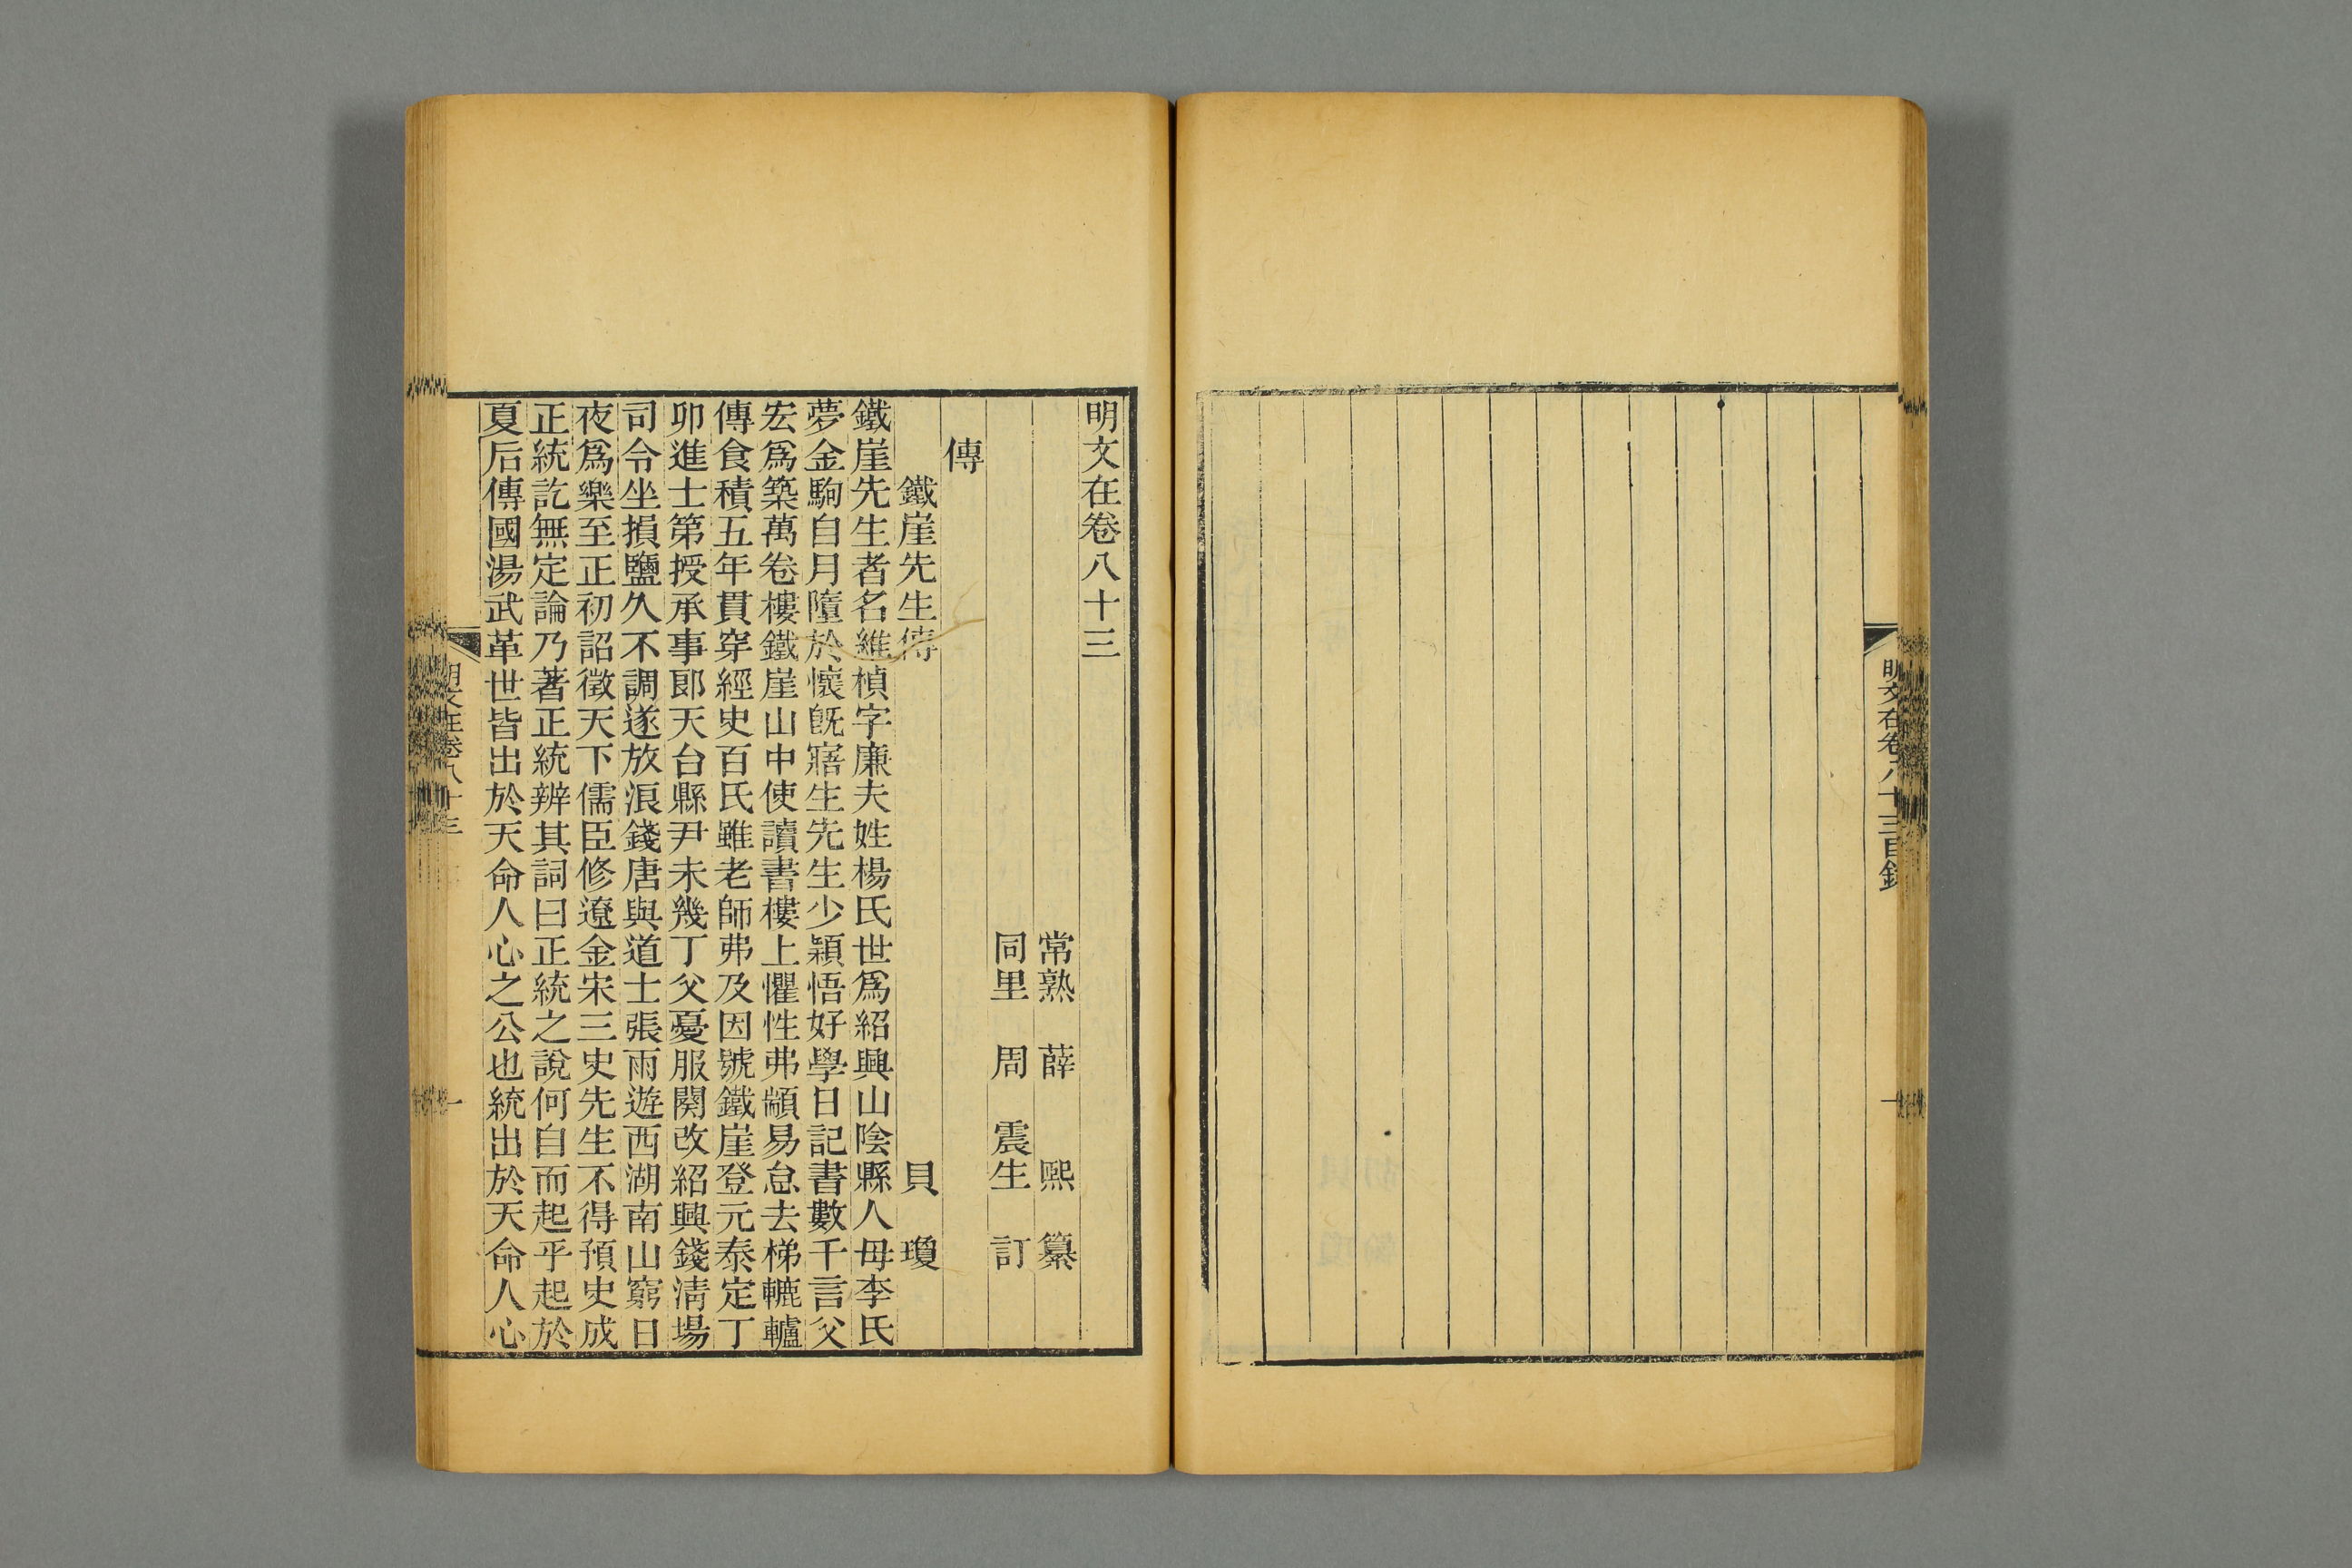 明文在卷八十三目錄
一
明文在卷八十三
常熟 薛 熙 纂
同里 周 震生 訂
傳
鐵崖先生傳 貝 瓊
鐵崖先生者名維楨字廉夫姓楊氏世爲紹興山陰縣人母李氏
夢金駒自月墮於懷旣寤生先生少穎悟好學日記書數千言父
宏爲築萬卷樓鐵崖山中使讀書樓上懼性弗顓易怠去梯轆轤
傳食積五年貫穿經史百氏雖老師弗及因號鐵崖登元泰定丁
卯進士第授承事郎天台縣尹未幾丁父憂服闋改紹興錢清場
司令坐損鹽久不調遂放浪錢唐與道士張雨遊西湖南山窮日
夜爲樂至正初詔徵天下儒臣修遼金宋三史先生不得預史成
正統訖無定論乃著正統辨其詞曰正統之說何自而起乎起於
夏后傳國湯武革世皆出於天命人心之公也統出於天命人心
明文在卷八十三
一